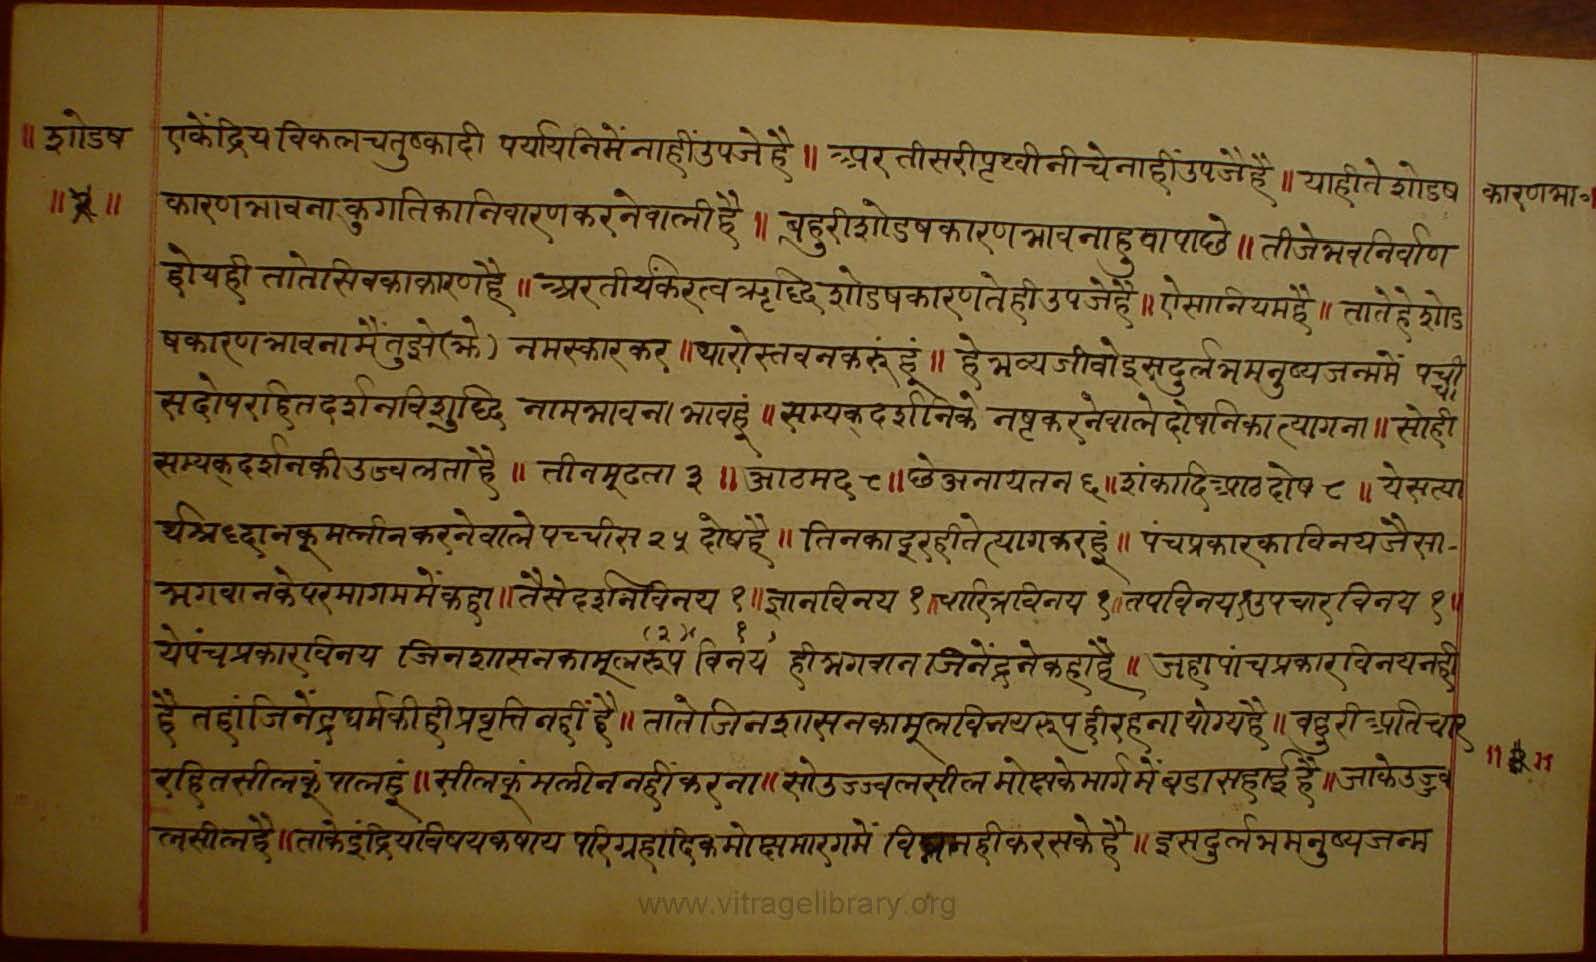 ॥ शोडष एकेंद्रिय विकलचतुष्कादी पर्यायनिमें नाहीं उपजे है ॥ अर तीसरी पृथ्वी नीचे नाहीं उपजै है ॥ याही ते शोडष कारणभा॰
कारणभावना कुगतिका निवारण करनेवाली है ॥ बहुरी शोडषकारणभावना हुवा पाछे ॥ तीजे भव निर्वाण
होय ही ताते सिवका कारण है ॥ अर तीर्थंकरत्व ऋृद्धि शोडषकारणते ही उपजे है ॥ ऐसा नियम है ॥ ताते हे शोड
षकारणभावना मैं तुझे (झे) नमस्कार कर ॥ थारो स्तवन करूं हूं ॥ हे भव्यजीवो इस दुर्लभ मनुष्यजन्ममें पच्ची
स दोषरहित दर्शनविशुद्धि नाम भावना भावहूं ॥ सम्यक्दर्शनके नष्ट करनेवाले दोषनिका त्यागना ॥ सो ही
सम्यक्दर्शनकी उज्वलता है ॥ तीन मूढता ३ ॥ आठ मद ८ ॥ छे अनायतन ६ ॥ शंकादि आठ दोष ८ ॥ ये सत्या
र्थ श्रद्धानकू मलीन करनेवाले पच्चीस २५ दोष है ॥ तिनका दूरहीते त्याग करहूं ॥ पंचप्रकारका विनय जैसा -
भगवानके परमागममें कहा ॥ तैसे दर्शनविनय १ ॥ ज्ञानविनय १ ॥ चारित्रविनय १ ॥ तपविनय १ उपचारविनय १ ॥
ये पंचप्रकार विनय जिनशासनका मूलरूप विनय ही भगवान जिनेंद्रने कहा है ॥ जहा पांचप्रकार विनय नही
है तहां जिनेंद्रधर्मकी ही प्रवृत्ति नहीं है ॥ ताते जिनशासनका मूल विनयरूप ही रहना योग्य है ॥ बहुरी अतिचार
रहित सीलकूं पालहूं ॥ सीलकूं मलीन नहीं करना ॥ सो उज्ज्वल सील मोक्षके मार्गमें बडा सहाई है ॥ जाके उज्ज्व
ल सील है ॥ ताके इंद्रियविषय कषाय परिग्रहादिक मोक्षमारगमें नही कर सके है ॥ इस दुर्लभ मनुष्यजन्म
www.vitragelibrary.org